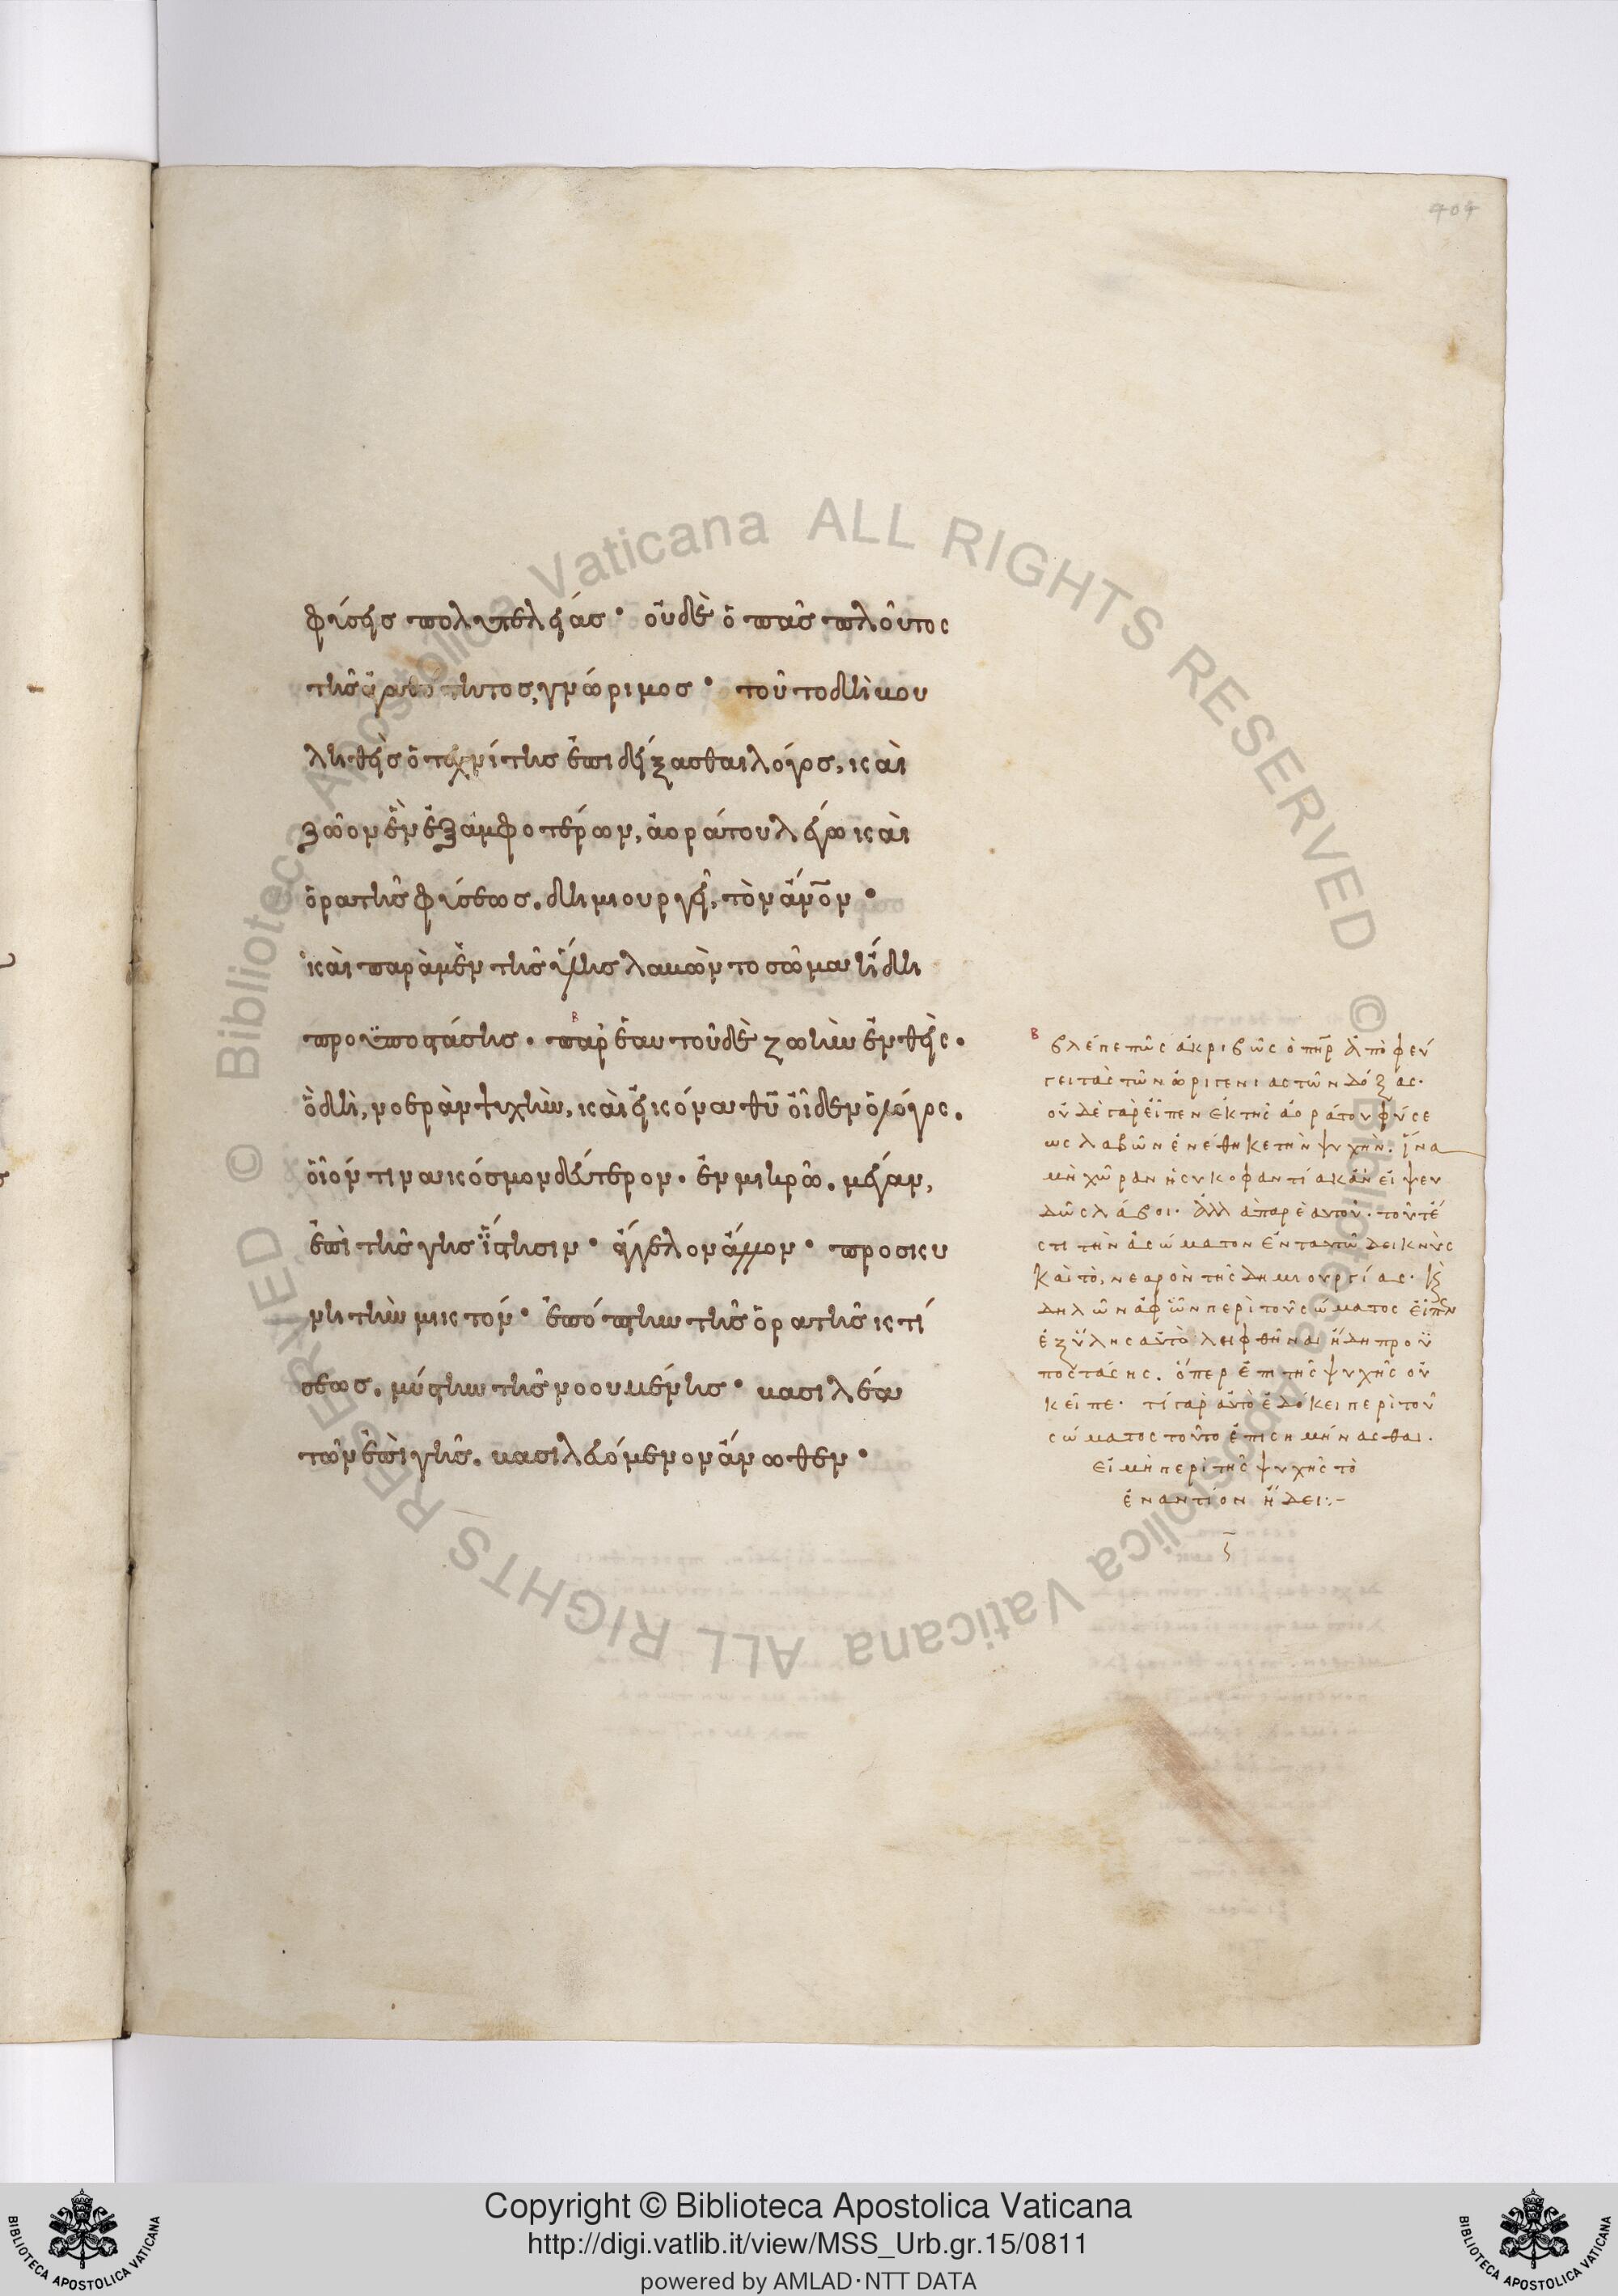 404
φύσεις πολυτελείας· οὐδὲ ὁ πᾶς πλοῦτος
τῆς ἀγαθότητος, γνώριμος· τοῦτο δὴ βου
ληθεὶς ὁ τεχνίτης ἐπιδείξασθαι λόγος, καὶ
ζῶον ἓν ἐξ ἀμφοτέρων, ἀοράτου λέγω καὶ
ὁρατῆς φύσεως, δημιουργεῖ, τὸν ἄνον·
καὶ παρὰ μὲν τῆς ὕλης λαβὼν το σῶμα ἤδη
προϋποστάσης. παρ' ἑαυτοῦ δὲ ζωὴν ἐνθεὶς.
ὃ δὴ, νοερὰν ψυχὴν, καὶ εἰκόνα θῦ οἶδεν ὁ λόγος.
οἷόν τινα κόσμον δεύτερον. ἐν μικρῶ, μέγαν,
ἐπὶ τῆς γῆς ἵστησιν· ἄγγελον ἄλλον· προσκυ
νητὴν μικτόν· ἐπόπτην τῆς ὁρατῆς κτί
σεως, μύστην τῆς νοουμένης· βασιλέα
τῶν ἐπὶ γῆς, βασιλευόμενον ἄνωθεν·
βλέπε πῶς ἀκριβῶς ὁ πηρ ἀποφεύ
γει τὰς τῶν ὠριγενιαστῶν δόξας.
οὐδὲ γὰρ εἶπεν ἐκ τῆς ἀοράτου φύσε
ως λαβὼν ἐνέθηκε τὴν ψυχὴν. ἵνα
μὴ χώραν ἡ συκοφαντία κἂν εἰ ψευ
δῶς λάβοι. ἀλλὰ παρ' ἑαυτοῦ. τουτέ
στι τὴν ἀσώματον ἐνταυτῶ δεικνὺς
καὶ τὸ, νεαρὸν τῆς δημιουργίας. καὶ
δηλῶν ἀφ' ὧν περὶ τοῦ σώματος εἶπεν
ἐξ ὕλης αὐτὸ λειφθῆναι ἤδη προϋ
ποστάσης. ὅπερ ἐπι τῆς ψυχῆς οὐ
κ εἶπε. τί γὰρ αὐτὸ ἐδόκει περὶ τοῦ
σώματος τοῦτο ἐπισημήνασθαι.
εἰ μὴ περὶ τῆς ψυχῆς τὸ
ἐναντίον ᾔδει:-
Copyright © Biblioteca Apostolica Vaticana
http://digi.vatlib.it/view/MSS_Urb.gr.15/0811
powered by AMLAD·NTT DATA